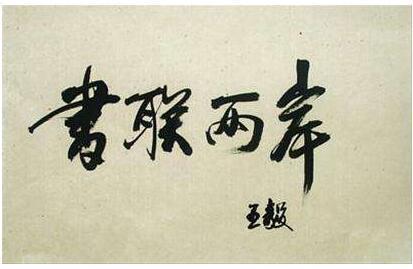 书联两岸
王毅